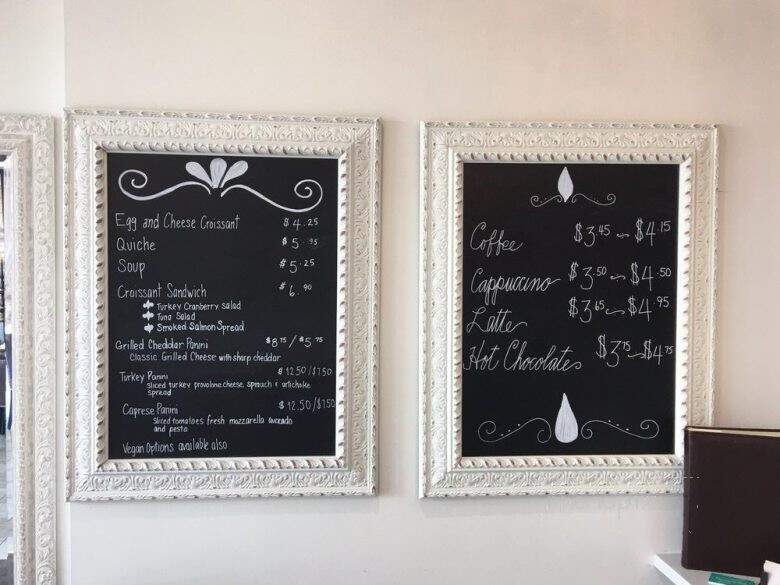 Egg and Cheese Croissant $4.25
Quiche $5.95
Soup $5.25
Croissant Sandwich $6.90
Turkey Cranberry Salad
Tuna Salad
Smoked Salmon Spread
Grilled Cheddar Panini $8.75/$5.75
Classic Grilled Cheese with sharp cheddar
Turkey Panini $12.50/$7.50
Sliced turkey provolone cheese, spinach & artichoke
spread
Caprese Panini $12.50/$7.50
Sliced tomatoes fresh mozzarella avocado
and pesto
Vegan Options available also
Coffee $3.45 ~ $4.15
Cappuccino $3.50 ~ $4.50
Latte $3.65 ~ $4.95
Hot Chocolate $3.75 ~ $4.75